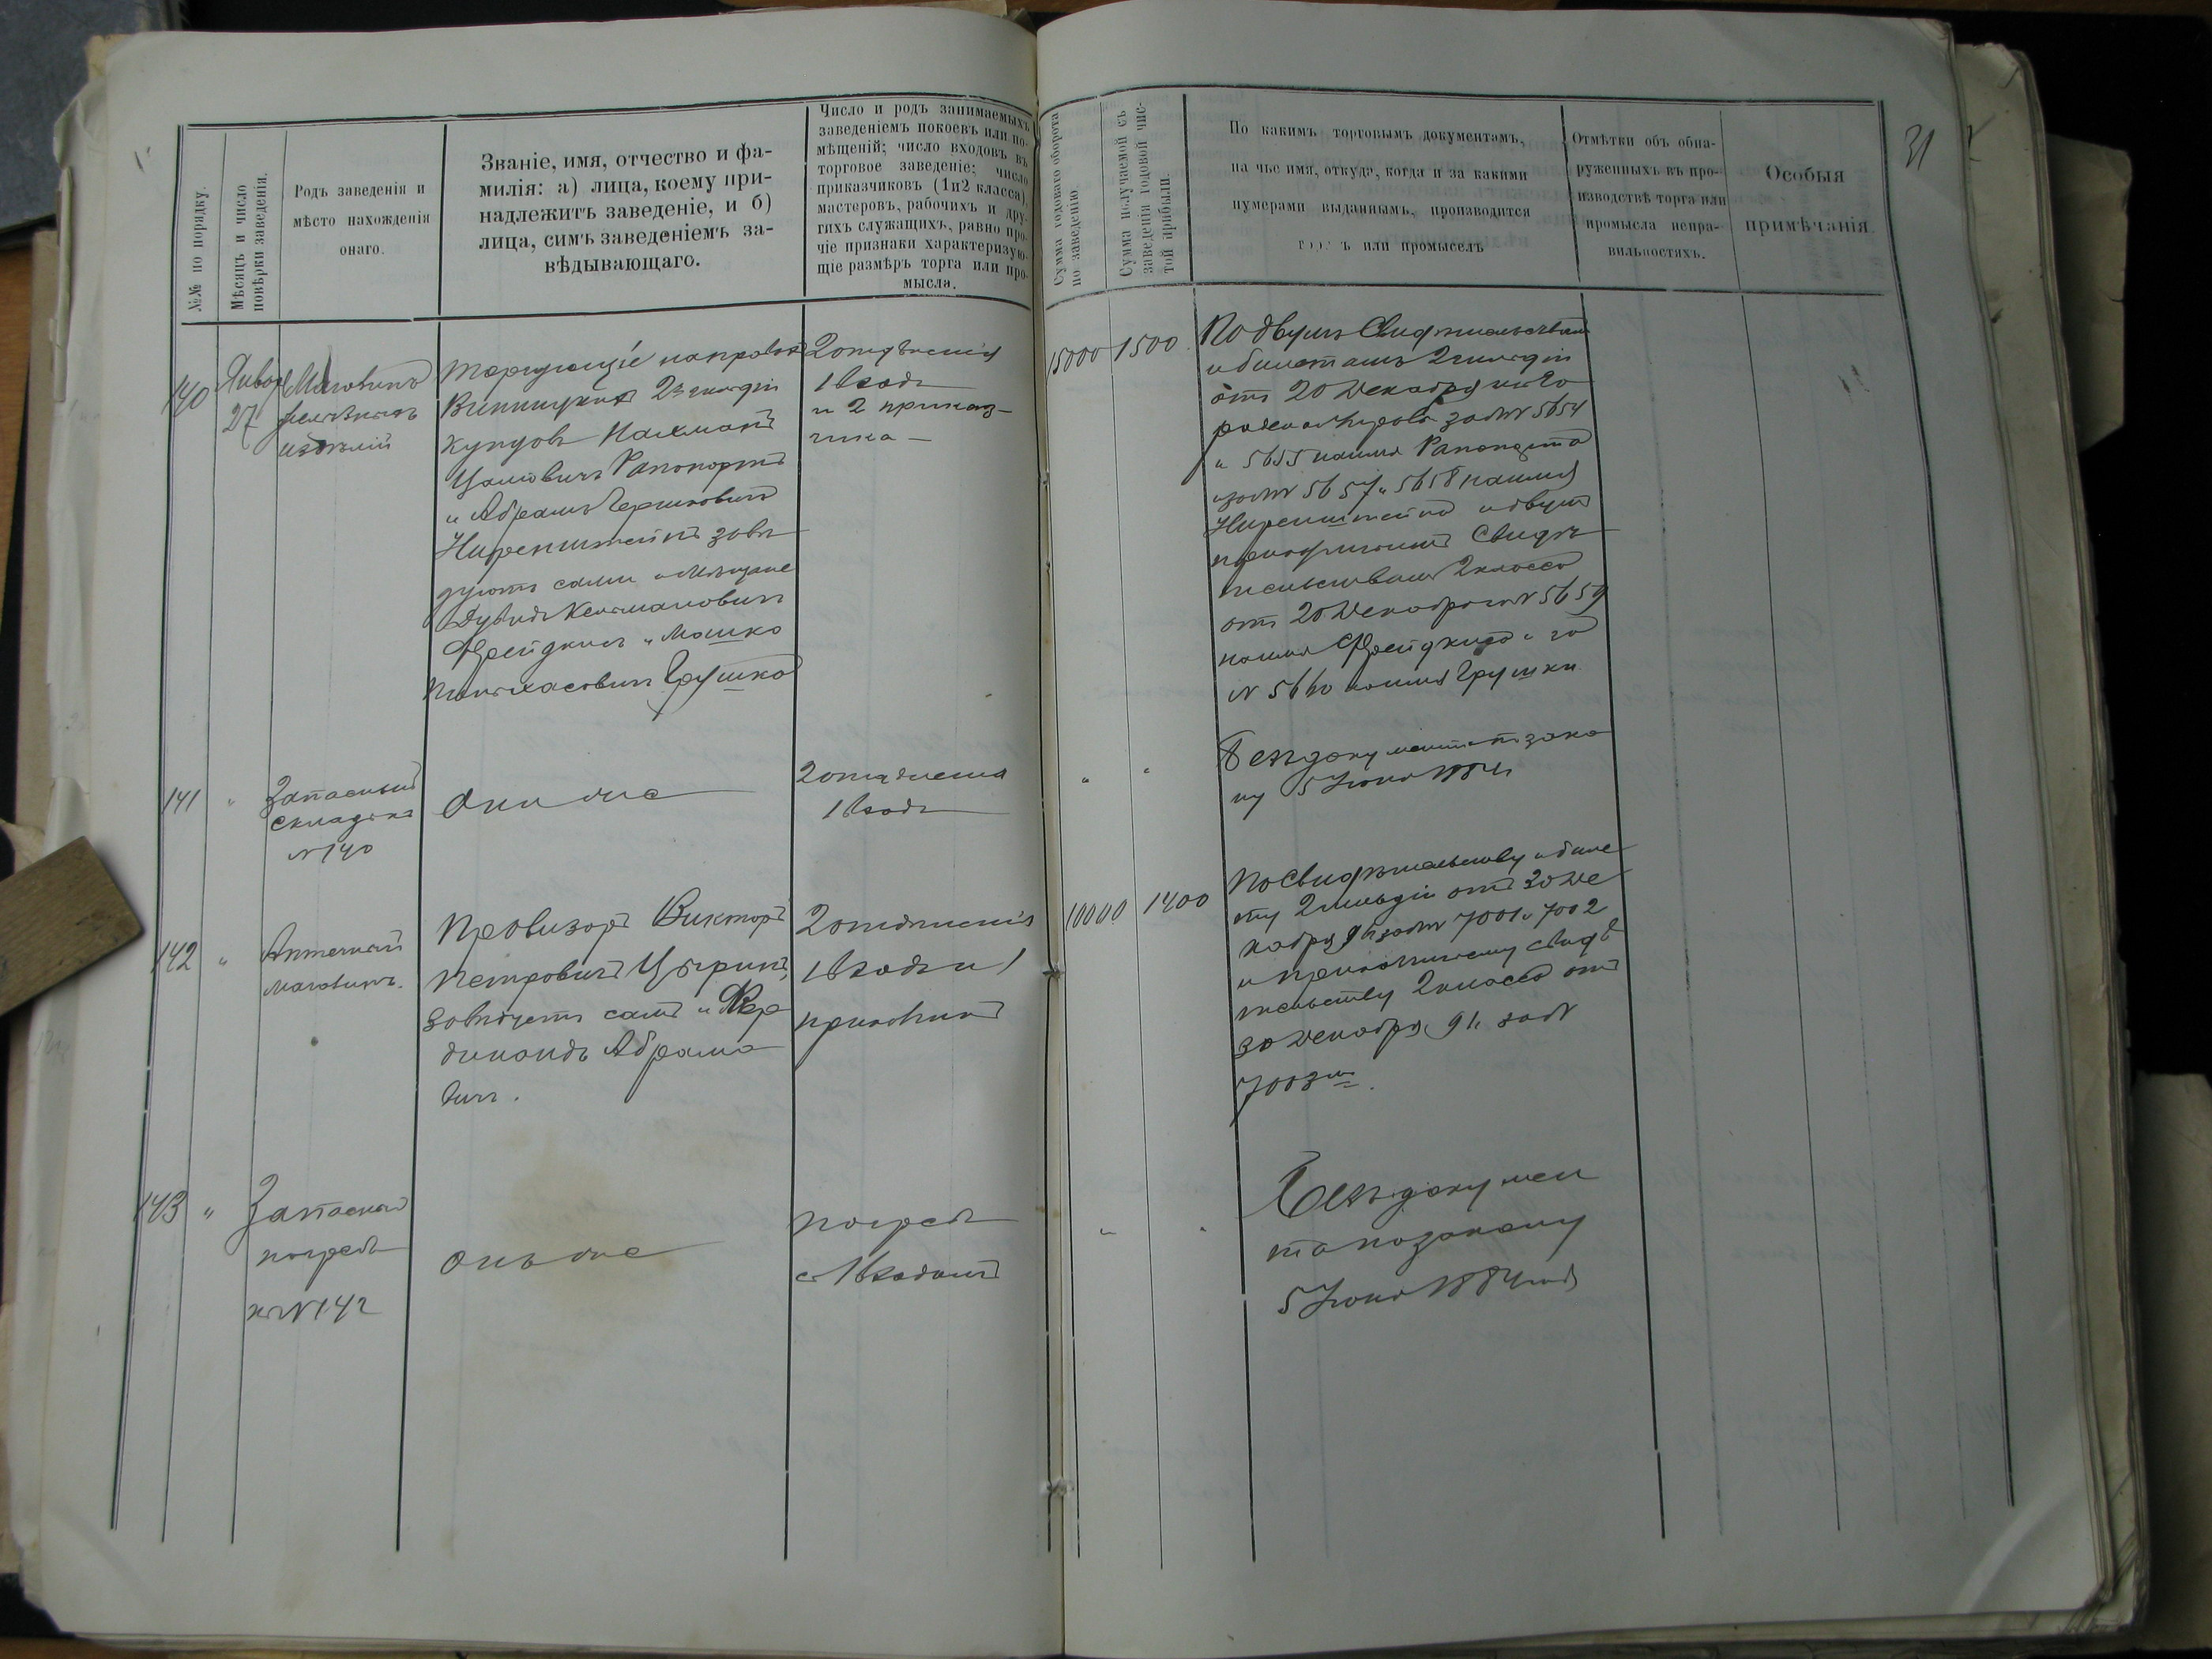 31
№№ по порядку.
Мѣсяцъ и число
повѣрки заведенія.
Родъ заведенія и
мѣсто нахожденія
онаго.
Званіе, имя, отчество и фа-
милія: а) лица, коему при-
надлежитъ заведеніе, и б)
лица, симъ заведеніемъ за-
вѣдывающаго.
Число и родъ занимаемыхъ
заведеніемъ покоевъ или по-
мѣщеній; число входовъ въ
торговое заведеніе; число
приказчиковъ (1и2 класса),
мастеровъ, рабочихъ и дру-
гихъ служащихъ, равно про-
чіе признаки характеризую-
щіе размѣръ торга или про-
мысла.
Сумма годоваго оборота
по заведенію.
Сумма получаемой съ
заведенія годовой чис-
той прибыли.
По какимъ торговымъ документамъ,
на чье имя, откуда, когда и за какими
нумерами выданнымъ, производится
или промыселъ
Отмѣтки объ обна-
руженныхъ въ про-
изводствѣ торга или
промысла непра-
вильностяхъ.
Особыя
примѣчанія.
140
Январ
27
Магазинъ
желѣзныхъ
издѣлій
Торгующіе на правах
Винницкихъ 2й гильдіи
купцовъ Нахманъ
Рапопортъ
и Абрамъ Гершковичъ
Ниренштейнъ завѣ
дуютъ сами и мѣщане
Дувидъ Кельмановичъ
Фрейдкинъ и Мошко
Пинхасовичъ Грушко
2 отдѣленія
1 входъ
и 2 приказ-
чика —
15000
1500
По двумъ Свидѣтельствам
и билетамъ 2 гильдіи
отъ 20 Декабря
за № 5654
и 5655 на имя Рапопорта
и за № 5657 и 5658 на имя
Ниренштейна и двум
приказчичьимъ Свидѣ
тельствамъ 2 класса
отъ 20 Декабря за № 5659
на имя Фрейдкина и за
№ 5660 на имя Грушки
141
"
Запасный
складъ къ
№ 140
Они же
2 отдѣленія
1 входъ
"
"
Безъ документа по зако
ну 5 Іюня 1884 г.
142
"
Аптечный
магазинъ.
Провизоръ Викторъ
Петровичъ Цыринъ,
завѣдуетъ самъ и Фер
динандъ Абрамо
вичъ.
2 отдѣленія
1 входъ и 1
приказчикъ
10000
1400
По Свидѣтельству и биле
ту 2 гильдіи отъ 30 Де
кабря 91 за № 7001 и 7002
и приказчичьему свидѣ
тельству 2 класса отъ
30 Декабря 91 г. за №
7003мъ.
143
"
Запасный
погребъ
къ № 142
Онъ же
погребъ
съ 1 входомъ
"
"
Безъ докумен
та по закону
5 Іюня 1884 год